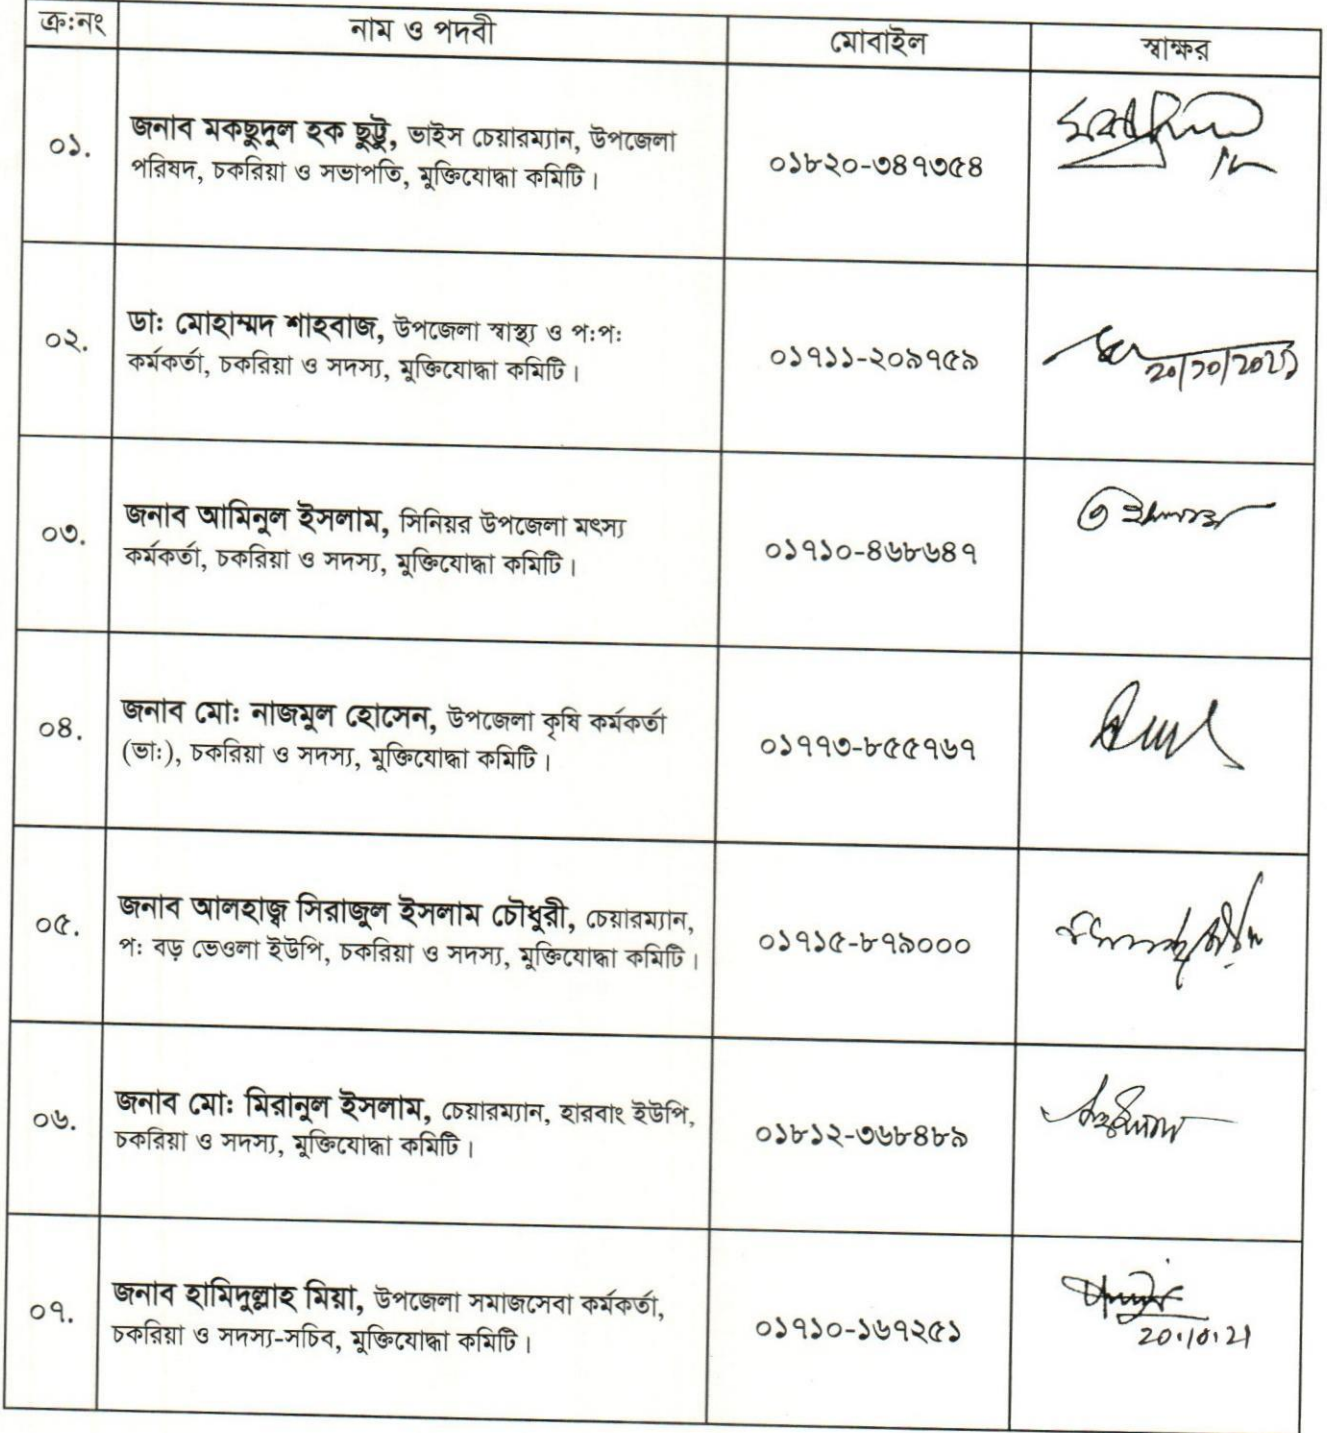 ক্র:নং নাম ও পদবী মোবাইল স্বাক্ষর
০১. জনাব মকছুদুল হক ছুট্টু, ভাইস চেয়ারম্যান, উপজেলা
পরিষদ, চকরিয়া ও সভাপতি, মুক্তিযোদ্ধা কমিটি। ০১৮২০-৩৪৭৩৫৪
০২. ডা: মোহাম্মদ শাহবাজ, উপজেলা স্বাস্থ্য ও প:প:
কর্মকর্তা, চকরিয়া ও সদস্য, মুক্তিযোদ্ধা কমিটি। ০১৭১১-২০৯৭৫৯
20/10/2021
০৩. জনাব আমিনুল ইসলাম, সিনিয়র উপজেলা মৎস্য
কর্মকর্তা, চকরিয়া ও সদস্য, মুক্তিযোদ্ধা কমিটি। ০১৭১০-৪৬৮৬৪৭
০৪. জনাব মো: নাজমুল হোসেন, উপজেলা কৃষি কর্মকর্তা
(ভা:), চকরিয়া ও সদস্য, মুক্তিযোদ্ধা কমিটি। ০১৭৭৩-৮৫৫৭৬৭
০৫. জনাব আলহাজ্ব সিরাজুল ইসলাম চৌধুরী, চেয়ারম্যান,
প: বড় ভেওলা ইউপি, চকরিয়া ও সদস্য, মুক্তিযোদ্ধা কমিটি। ০১৭১৫-৮৭৯০০০
০৬. জনাব মো: মিরানুল ইসলাম, চেয়ারম্যান, হারবাং ইউপি,
চকরিয়া ও সদস্য, মুক্তিযোদ্ধা কমিটি। ০১৮১২-৩৬৮৪৮৯
০৭. জনাব হামিদুল্লাহ মিয়া, উপজেলা সমাজসেবা কর্মকর্তা,
চকরিয়া ও সদস্য-সচিব, মুক্তিযোদ্ধা কমিটি। ০১৭১০-১৬৭২৫১
20.10.21